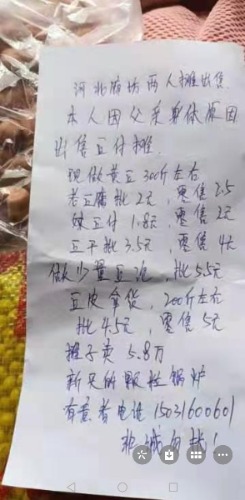 河北廊坊两人摊出售
本人因父亲身体原因
出售豆付摊.
现做黄豆300斤左右
老豆腐批2元，零售2.5
辣豆付1.8元，零售2元
豆干批3.5元 零售4元
做少量豆泡，批5.5元
豆皮拿货，200斤左右
批4.5元，零售5元
摊子卖5.8万
新买的颗粒锅炉
有意者电话15031600601
非诚勿扰！